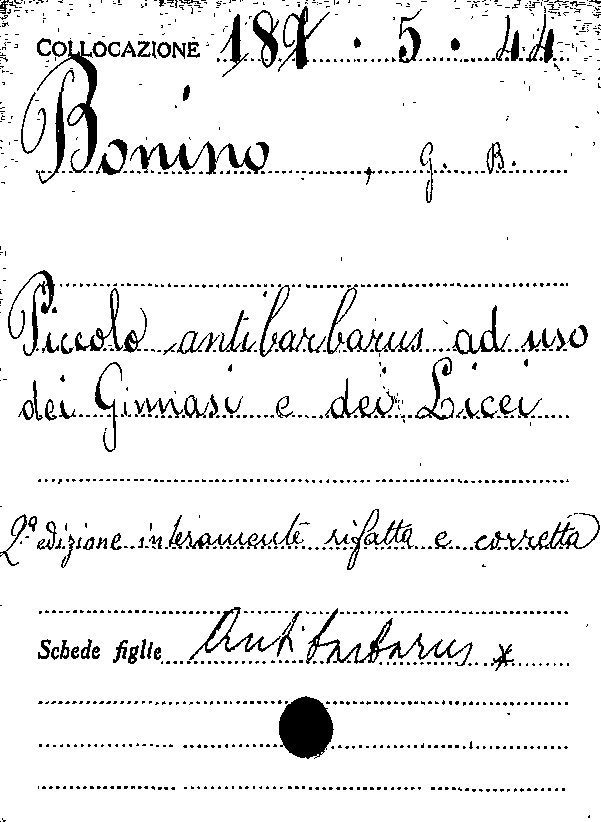 COLLOCAZIONE 181 · 5 · 44
Bonino, G. B.
Piccolo antibarbarus ad uso
dei Ginnasi e dei Licei
2ª edizione interamente rifatta e corretta
Schede figlie Antibarbarus *